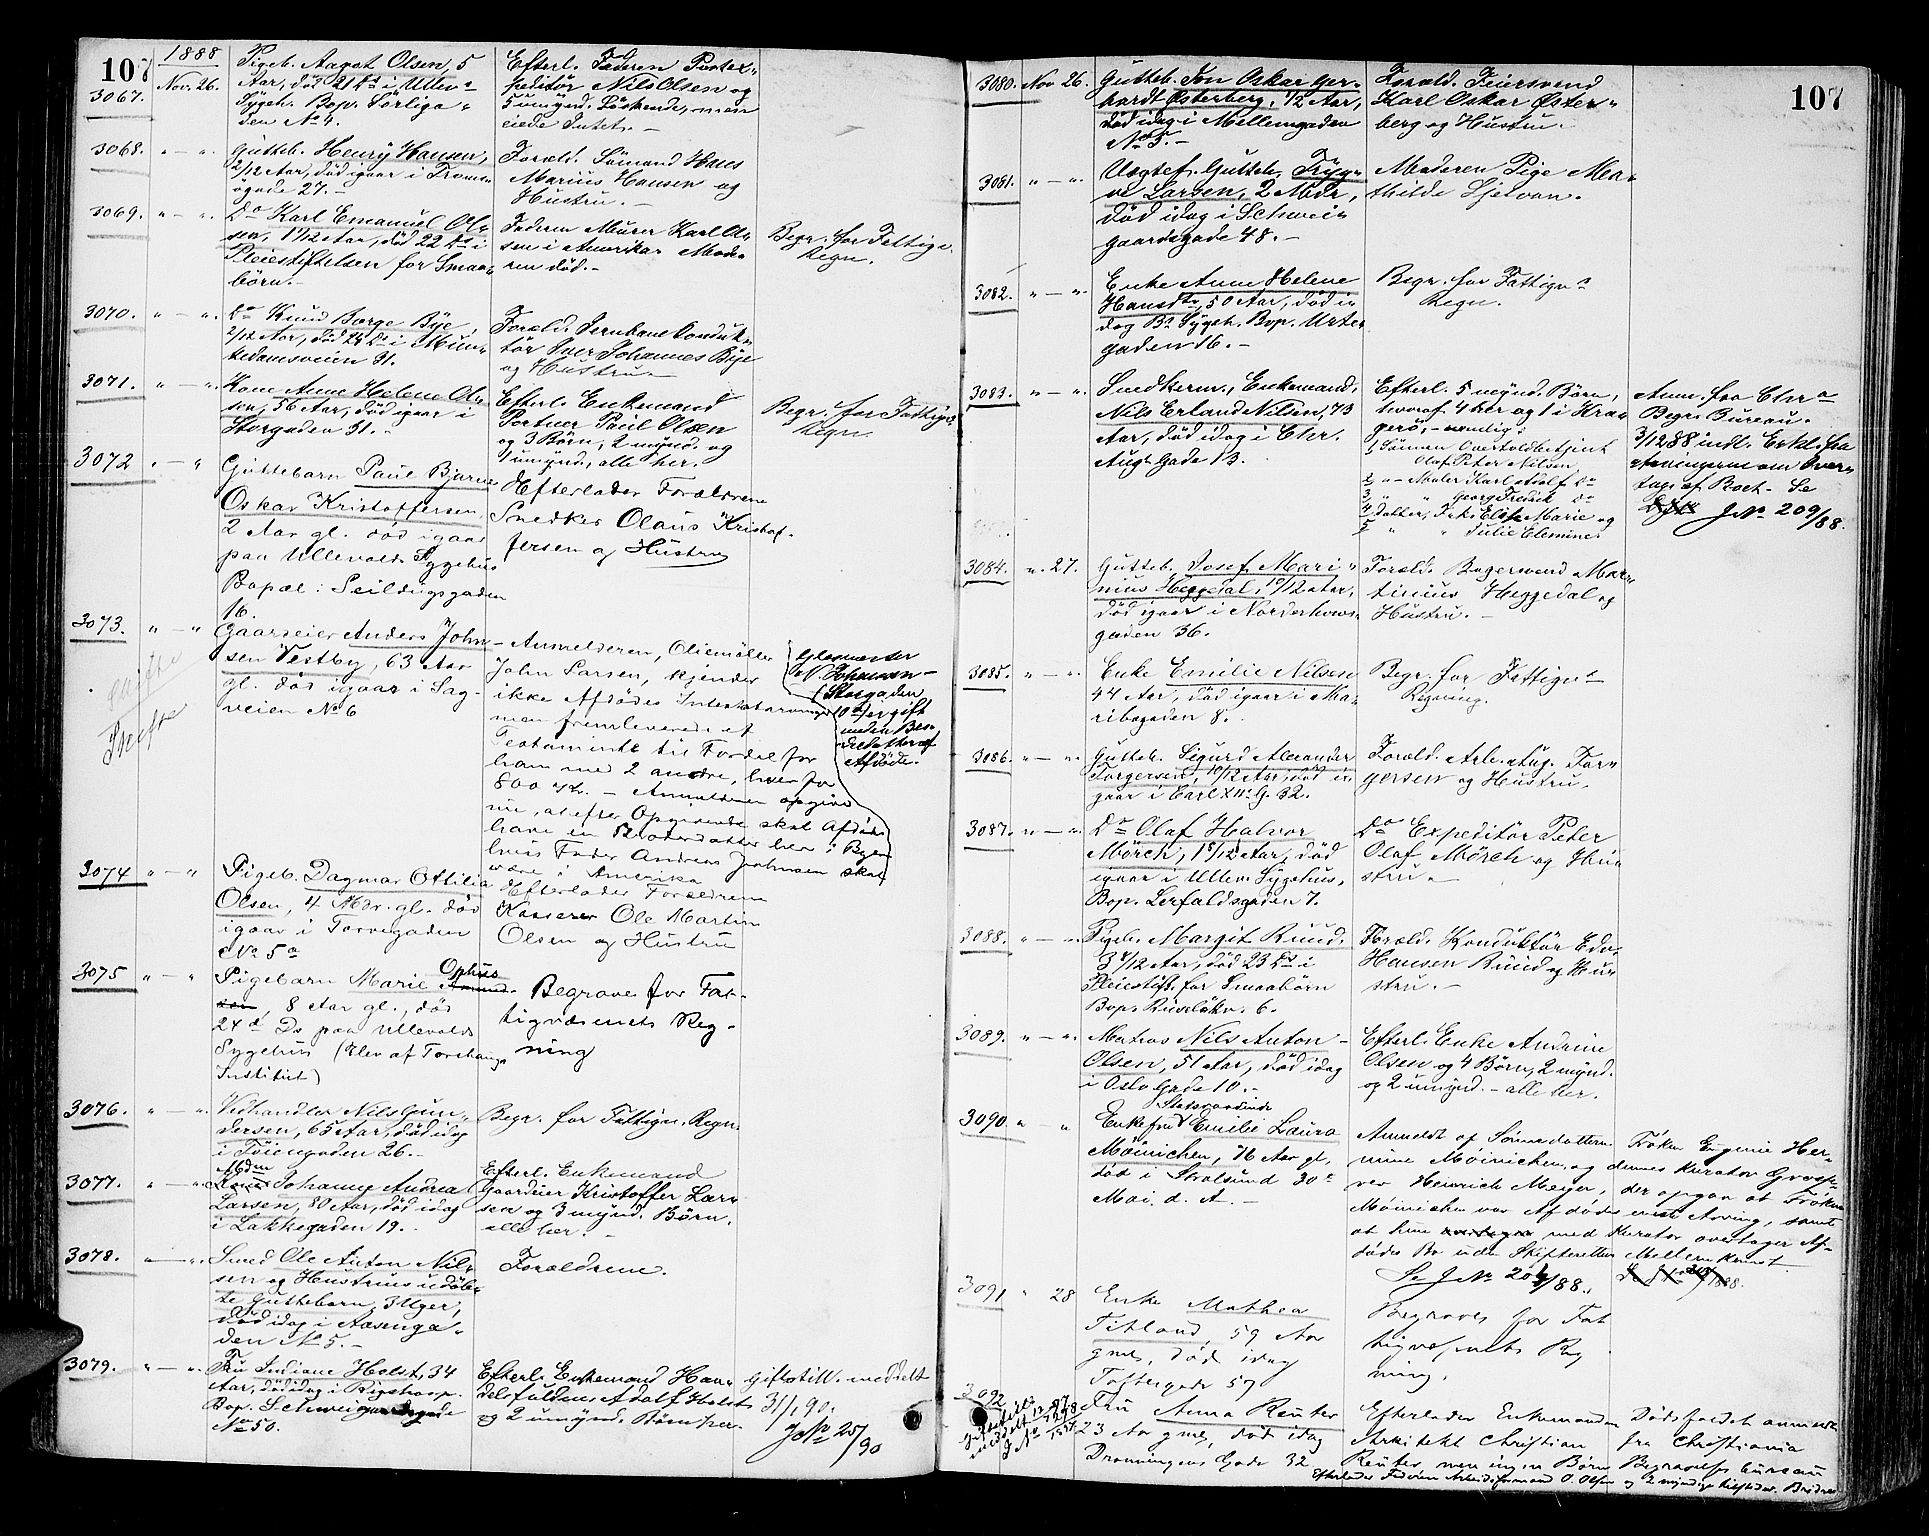 107
1888
3067.
Nov. 26.
Pigeb. Aagot Olsen, 5
Aar, død 21 ds i Ullev.
Sygeh. Bop. Sörliga-
den No 4.
Efterl. Faderen Postex-
peditör Nils Olsen og
5 umynd. Söskende, men
eiede Intet. -
3068.
" - ".
Gutteb. Henry Hansen,
2/12 Aar, død igaar i Trom-
sögade 27. -
Foræld. Sömand Hans
Marius Hansen og
Hustru. -
3069.
" - ".
Do Karl Emanuel Ol-
sen, 1 9/12 Aar, død 22 ds i
Pleiestiftelsen for Smaa-
börn. -
Faderen Murer Karl Ol-
sen i Amerika, Mode-
ren död. -
Begr. for Fattigv.
Regn.
3070.
" - ".
Do Knud Borge Bye,
2/12 Aar, död 25 ds i Mun-
kedamsveien 31.
Foræld. Jernbane Konduk-
tör Iver Johannes Bye
og Hustru. -
3071.
" - ".
Kone Anne Helene Ol-
sen, 56 Aar, død igaar i
Storgaden 31. -
Efterl. Enkemand
Portner Paul Olsen
og 3 Börn, 2 mynd. og
1 umynd., alle her.
Begr. for Fattigvs
Regn.
3072
" - "
Guttebarn Paul Bjarne
Oskar Kristoffersen,
2 Aar gl. død igaar
paa Ullevolds Sygehus
Bopæl: Seildugsgaden
16.
Efterlader Forældrene
Snedker Olaus Kristof-
fersen og Hustru
3073.
" - "
Gaardeier Anders John-
sen Vestby, 63 Aar
gl. død igaar i Sag-
veien No 6
Skifte
Anmelderen, Oliemöller
John Larsen, kjender
ikke Afdödes Intestatarvinger
men fremleverede et
Testamente til Fordel for
ham med 2 andre, hver for
800 Kr. - Anmelderen opgiver
nu, at efter Opgivende skal Afdöde
have en Broderdatter her i Byen
hvis Fader Andreas Johnsen skal
være i Amerika
Glasmester
N. Johansen
Storgaden
10 a, er gift
med en Bro-
derdatter af
Afdøde.
3074
" - "
Pigeb. Dagmar Ottilia
Olsen, 4 Mdr. gl. död
igaar i Torvegaden
No 5 a
Efterlader Forældrene
Kasserer Ole Martin
Olsen og Hustru
3075
" - "
Pigebarn Marie Ophus
8 Aar gl., död
24 d. Ds paa Ullevolds
Sygehus (Elev af Torshaugs
Institut)
Begraves for Fat-
tigvæsenets Reg-
ning
3076.
" - ".
Vedhandler Nils Gun-
dersen, 65 Aar, död idag
i Töiengaden 26. -
Begr. for Fattigv. Regn.
3077.
" - ".
Mdm
Johanne Andrea
Larsen, 80 Aar, död idag
i Lakkegaden 19. -
Efterl. Enkemand
Gaardeier Kristoffer Lar-
sen og 3 mynd. Börn,
alle her. -
3078.
" - ".
Smed Ole Anton Nil-
sen og Hustrus udöb-
te Guttebarn, 3 Uger,
död idag i Aasenga-
den No 5. -
Forældrene.
3079.
" - ".
Fru Indiane Holst, 34
Aar, död idag i Rigshosp.
Bop. Schweigaardsgade
No 50.
Efterl. Enkemand Han-
delsfuldm. Adolf Holst
og 2 umynd. Börn her.
Giftetill. meddelt
31/1 90.
J. No 25/90
107
3080.
Nov 26.
Gutteb. Jon Oskar Ger-
hardt Østerberg, 1/2 Aar,
död idag i Mellemgaden
No 3. -
Foræld. Feiersvend
Karl Oskar Øster-
berg og Hustru. -
3081.
" - ".
Uægtef. Gutteb. Tryg-
ve Larsen, 2 Mdr,
död idag i Schwei-
gaardsgade 48. -
Moderen Pige Ma-
thilde Sjelvan.
3082.
" - ".
Enke Anne Helene
Hansdtr, 50 Aar, död i
dag Bo Sygeh. Bop. Urte-
gaden 16. -
Begr. for Fattigvs
Regn.
3083.
" - ".
Snedkerm., Enkemand,
Nils Erland Nilsen, 73
Aar, död idag i Chr.
Augt Gade 13.
Efterl. 5 mynd. Börn,
hvoraf 4 her og 1 i Kra-
gerö, - nemlig:
1, Sönnen Overtoldbetjent
Olaf Peter Nilsen,
2 " - Maler Karl Adolf do
3 " " Georg Fredrik do
4 Datter, Frk. Elise Marie og
5 " " Julie Elemine.
Anm. fra Chra
Begr. Bureau.
3/12 88 indl. Erkl. fra
Arvingerne om Over-
tag. af Boet. Se
J No 209/88.
3084.
" 27.
Gutteb. Josef Mari-
nius Heggedal, 10/12 Aar,
död igaar i Norderhovs-
gaden 36.
Foræld. Bagersvend Mar-
tinius Heggedal og
Hustru. -
3085.
" - ".
Enke Emilie Nilsen
44 Aar, död igaar i Ma-
ribogaden 8.
Begr. for Fattigvs
Regning.
3086.
" - ".
Gutteb. Sigurd Alexander
Torgersen, 10/12 Aar, död i-
gaar i Carl XII. G. 32.
Foræld. Arb. Aug. Tor-
gersen og Hustru.
3087.
" - ".
Do Olaf Halvor
Mörch, 1 8/12 Aar, död
igaar i Ullev. Sygehus,
Bop. Lerfaldsgaden 7.
Do Expeditör Peter
Olaf Mörch og Hu-
stru. -
3088.
" - ".
Pigeb. Margit Ruud,
3 4/12 Aar, död 23 ds i
Pleiestift. for Smaabörn
Bop. Ruselökv. 6.
Foræld. Konduktör Edv.
Hansen Ruud og Hu-
stru. -
3089.
" - ".
Matros Nils Anton
Olsen, 51 Aar, död idag
i Oslo Gade 10. -
Efterl. Enke Andrine
Olsen og 4 Börn, 2 mynd.
og 2 umynd. - alle her.
3090.
" "
Enkefru Emilie Laura
Möinichen, 76 Aar gl.
död i Stralsund 30te
Mai d. A. -
Anmeldt af Sönnedatteren Fröken Eugenie Her-
mine Möinichen, og dennes Kurator Gross-
rer Heinrich Meyer, der opgav at Fröken
Möinichen var Afdödes eneste Arving, samt
at hun med Kurator overtager Af-
dödes Bo uden Skifterettens Mellemkomst.
Se J No 204/88.
3091
" 28
Enke Mathea
Titland, 59 Aar
gml, død idag
Toftesgade 57
Begraves for Fat
tigvesenets Reg
ning.
3092
Fru Anna Reuter
23 Aar gml, død idag
Dronningens Gade 32
Efterlader Enkemanden
Arkitekt Christian
Reuter, men ingen Börn
Dödsfaldet anmeldt
fra Christiania
Begravelsbureau
Efterlader Faderen Arbeidsformand O. Olsen og 2 myndige helsöskende Brödre